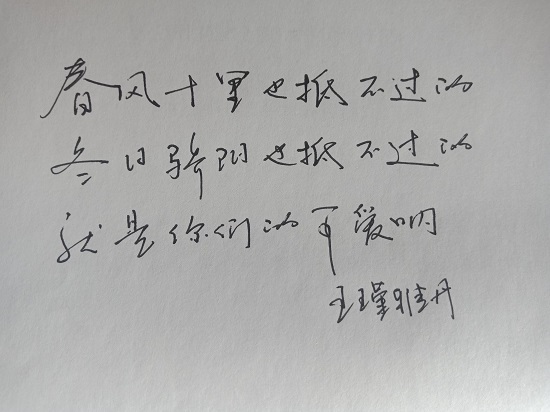 春风十里也抵不过的
冬日骄阳也抵不过的
就是你们的可爱呐
王瑾雅丹